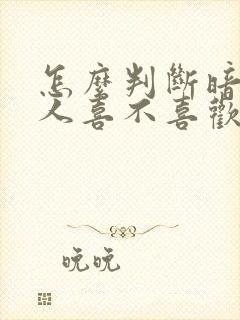 怎麼判斷暗
人喜不喜歡
晚晚